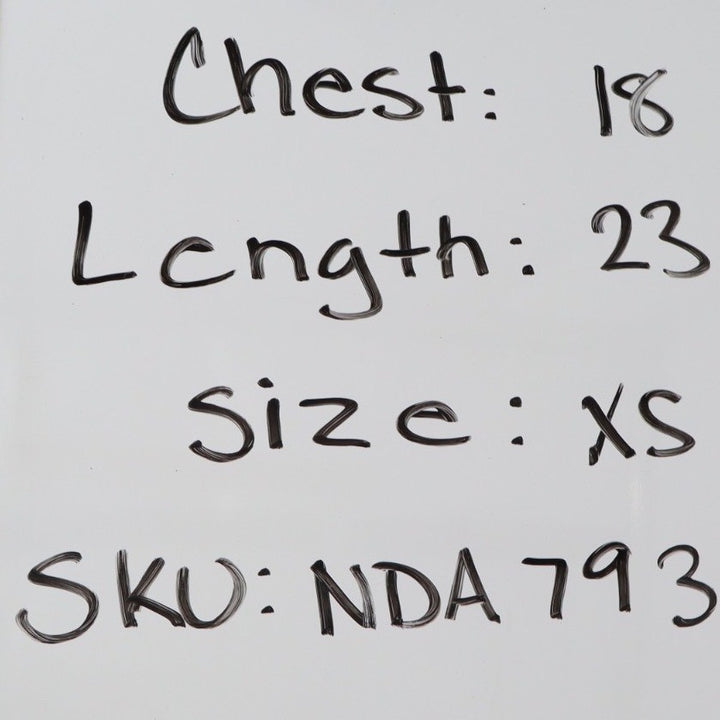 Chest: 18
Length: 23
Size: XS
SKU: NDA 793